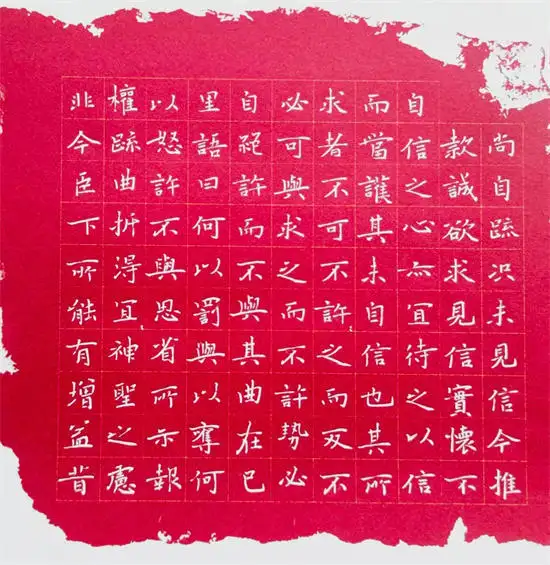 尚自疏况未見信今推
款誠欲求見信實懷不
自信之心亦宜待之以信
而當護其未自信也其所
求者不可不許、之而反不
必可與求之而不許勢必
自絕許而不與其曲在己
里語曰何以罰與以奪何
以怒許不與思省所示報
權疏曲折得宜、神聖之慮
非今臣下所能有增益昔